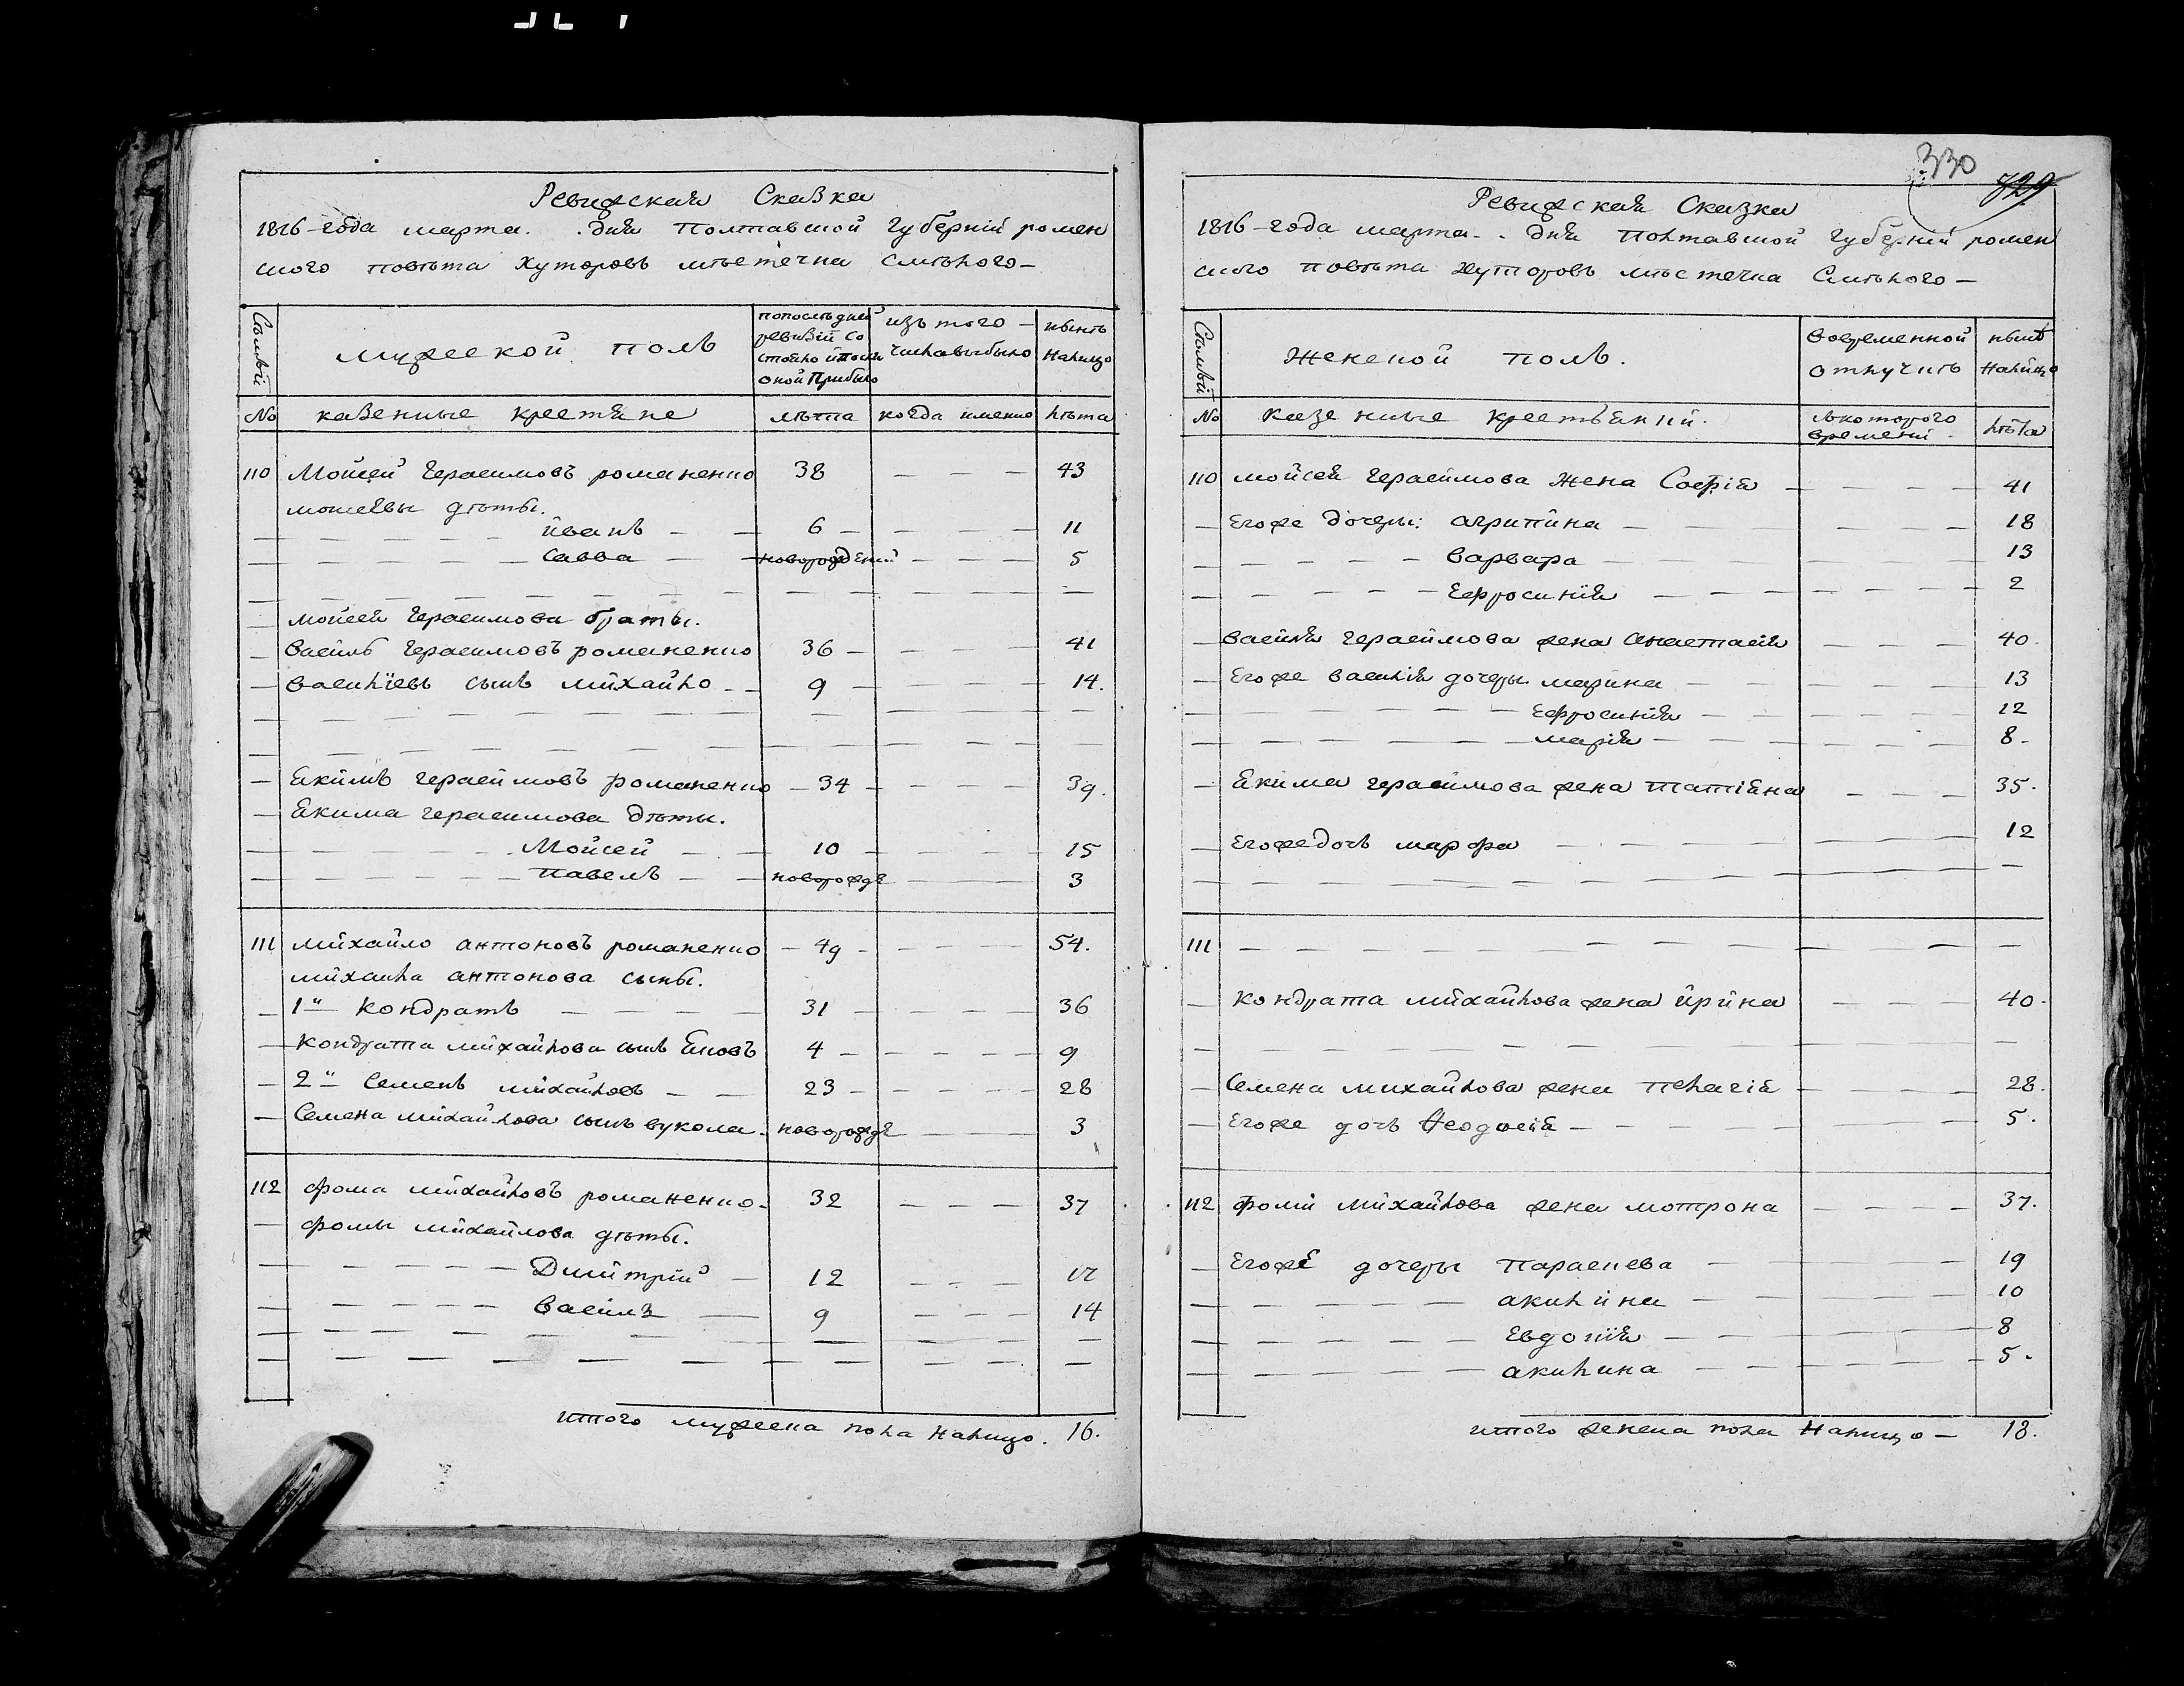 Ревизская Сказка
1816-года марта. . дня Полтавской Губерній ромен
ского повѣта Хуторовъ мѣстечка Смѣлого-
Семьи
мужеской полъ
по последней ревизій состояло и после оной прибыло
изъ того числа выбыло
нынѣ налицо
№ казенные крестяне лѣта когда именно лѣта
110 Мойсей Герасимовъ романенко 38 — — — 43
мойсеевы дѣты.
— — — — — иванъ — — 6 — — — — 11
— — — — — Савва — новорожденій — — — 5
— — — — — — — — — — — —
— мойсея Герасимова браты.
— Василь Герасимовъ романенко 36 — — — — 41
— василіевъ сынъ михайло — — 9 — — — — 14.
— — — — — — — — — —
— — — — — — — — — — — —
— Якимъ герасимовъ романенко — 34 — — — — 39.
— Якима герасимова дѣты.
— — — — Мойсей — — 10 — — — — 15
— — — — — — павелъ — — новорожде — — 3
111 михайло антоновъ романенко — 49 — — — — 54.
михаила антонова сыны.
— 1й Кондратъ — — — — 31 — — — — 36
— Кондрата михайлова сынъ Яковъ 4 — — — — — 9
— 2й Семенъ михайловъ — — 23 — — — — 28
— Семена михайлова сынъ вукола. новорожде — — 3
112 фома михайловъ романенко. 32 — — — 37
— фомы михайлова дѣты.
— — — — — Дмитрій — 12 — — — 17
— — — — — Василь — 9 — — — 14
— — — — — — — — — — —
— — — — — — — — — — —
итого мужеска пола налицо. 16.
330 729
Ревизская Сказка
1816-года марта- . дня Полтавской Губерній ромен
ского повѣта хуторовъ мѣстечка Смѣлого —
Семьи
Женской полъ.
во временной отлучкѣ
нынѣ налицо
№ казенные крестьянкй. съ которого времени. лѣта
110 мойсея герасимова жена Софія — — — — 41
— Егоже дочеры: агрипина — — — — 18
— — — — — варвара — — — — 13
— — — — — Ефросинія — — — — — — — — 2
— василя герасимова жена анастасія — — — 40.
— Егоже василія дочеры марина — — — — — 13
— — — — — Ефросинія — — — — — — 12
— — — — — — марія — — — — — — 8-
— Якима герасимова жена татіяна — — — 35.
— Егоже дочъ марфа — — — — — 12
— — — — — — — — — — — —
111 — — — — — — — — — — —
— кондрата михайлова жена ирина — — — 40.
— — — — — — — — — — —
— Семена михайлова жена пелагія — — — — 28.
— Егоже дочъ Феодосія — — — — — — 5.
112 фоми михайлова жена мотрона — — — — 37.
— Егоже дочеры параскева — — — — 19
— — — — — акилина — — — — — 10
— — — — — — Евдокія — — — — — 8
— — — — — акилина — — — — — — 5.
итого женска пола налицо — 18.